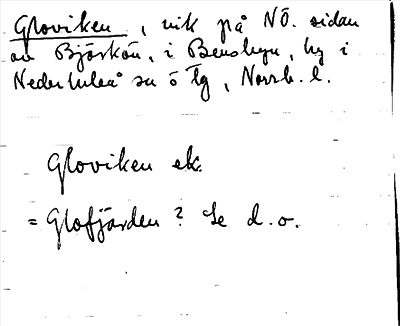 Gloviken, vik på NÖ. sidan
av Björkön, i Bensbyn, by i
Nederluleå sn ö tg, Norrb. l.
Gloviken ek.
= Glofjärden? Se d. o.